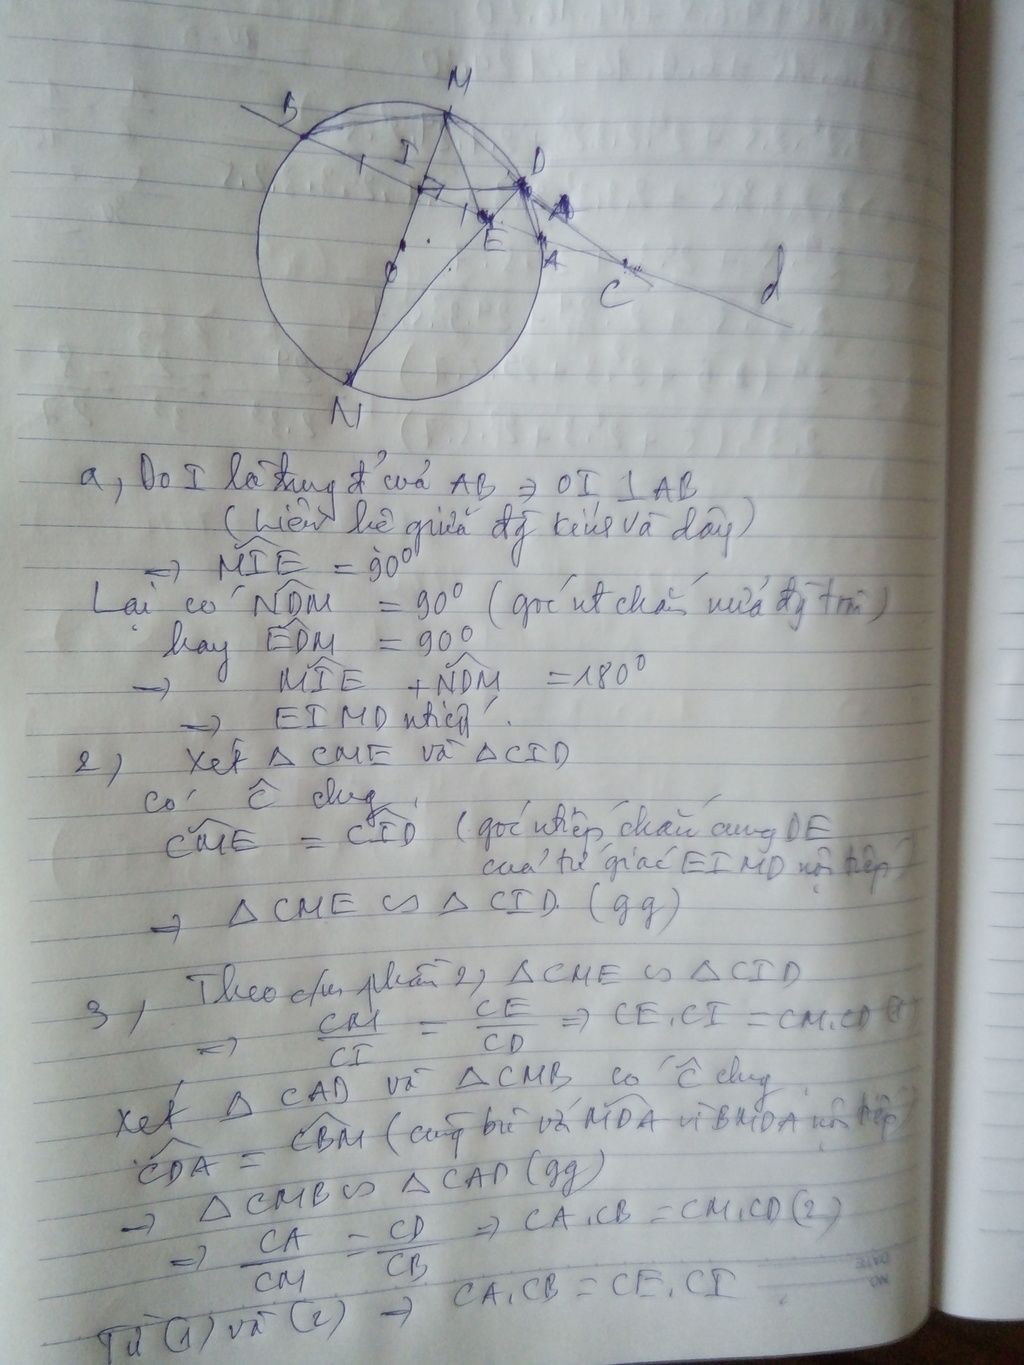 B
M
I
D
E
A
O
C
d
N
a, Do I là trung đ' của AB ⇒ OI ⊥ AB
(liên hệ giữa đg kính và dây)
⇒ MIE = 90°
Lại có NDM = 90° (góc nt chắn nửa đg tròn)
hay EDM = 90°
⇒ MIE + NDM = 180°
⇒ EIMD ntiếp.
2, Xét Δ CME và Δ CID
có Ĉ chung
CME = CID (góc ntiếp chắn cung DE
của tứ giác EIMD nội tiếp)
⇒ Δ CME ∽ Δ CID (gg)
3, Theo cm phần 2, Δ CME ∽ Δ CID
⇒ CM/CI = CE/CD ⇒ CE.CI = CM.CD (1)
Xét Δ CAD và Δ CMB có Ĉ chung
CDA = CBM (cùng bù với MDA vì BMDA nội tiếp)
⇒ Δ CMB ∽ Δ CAD (gg)
⇒ CA/CM = CD/CB ⇒ CA.CB = CM.CD (2)
Từ (1) và (2) ⇒ CA.CB = CE.CI
NO
DATE